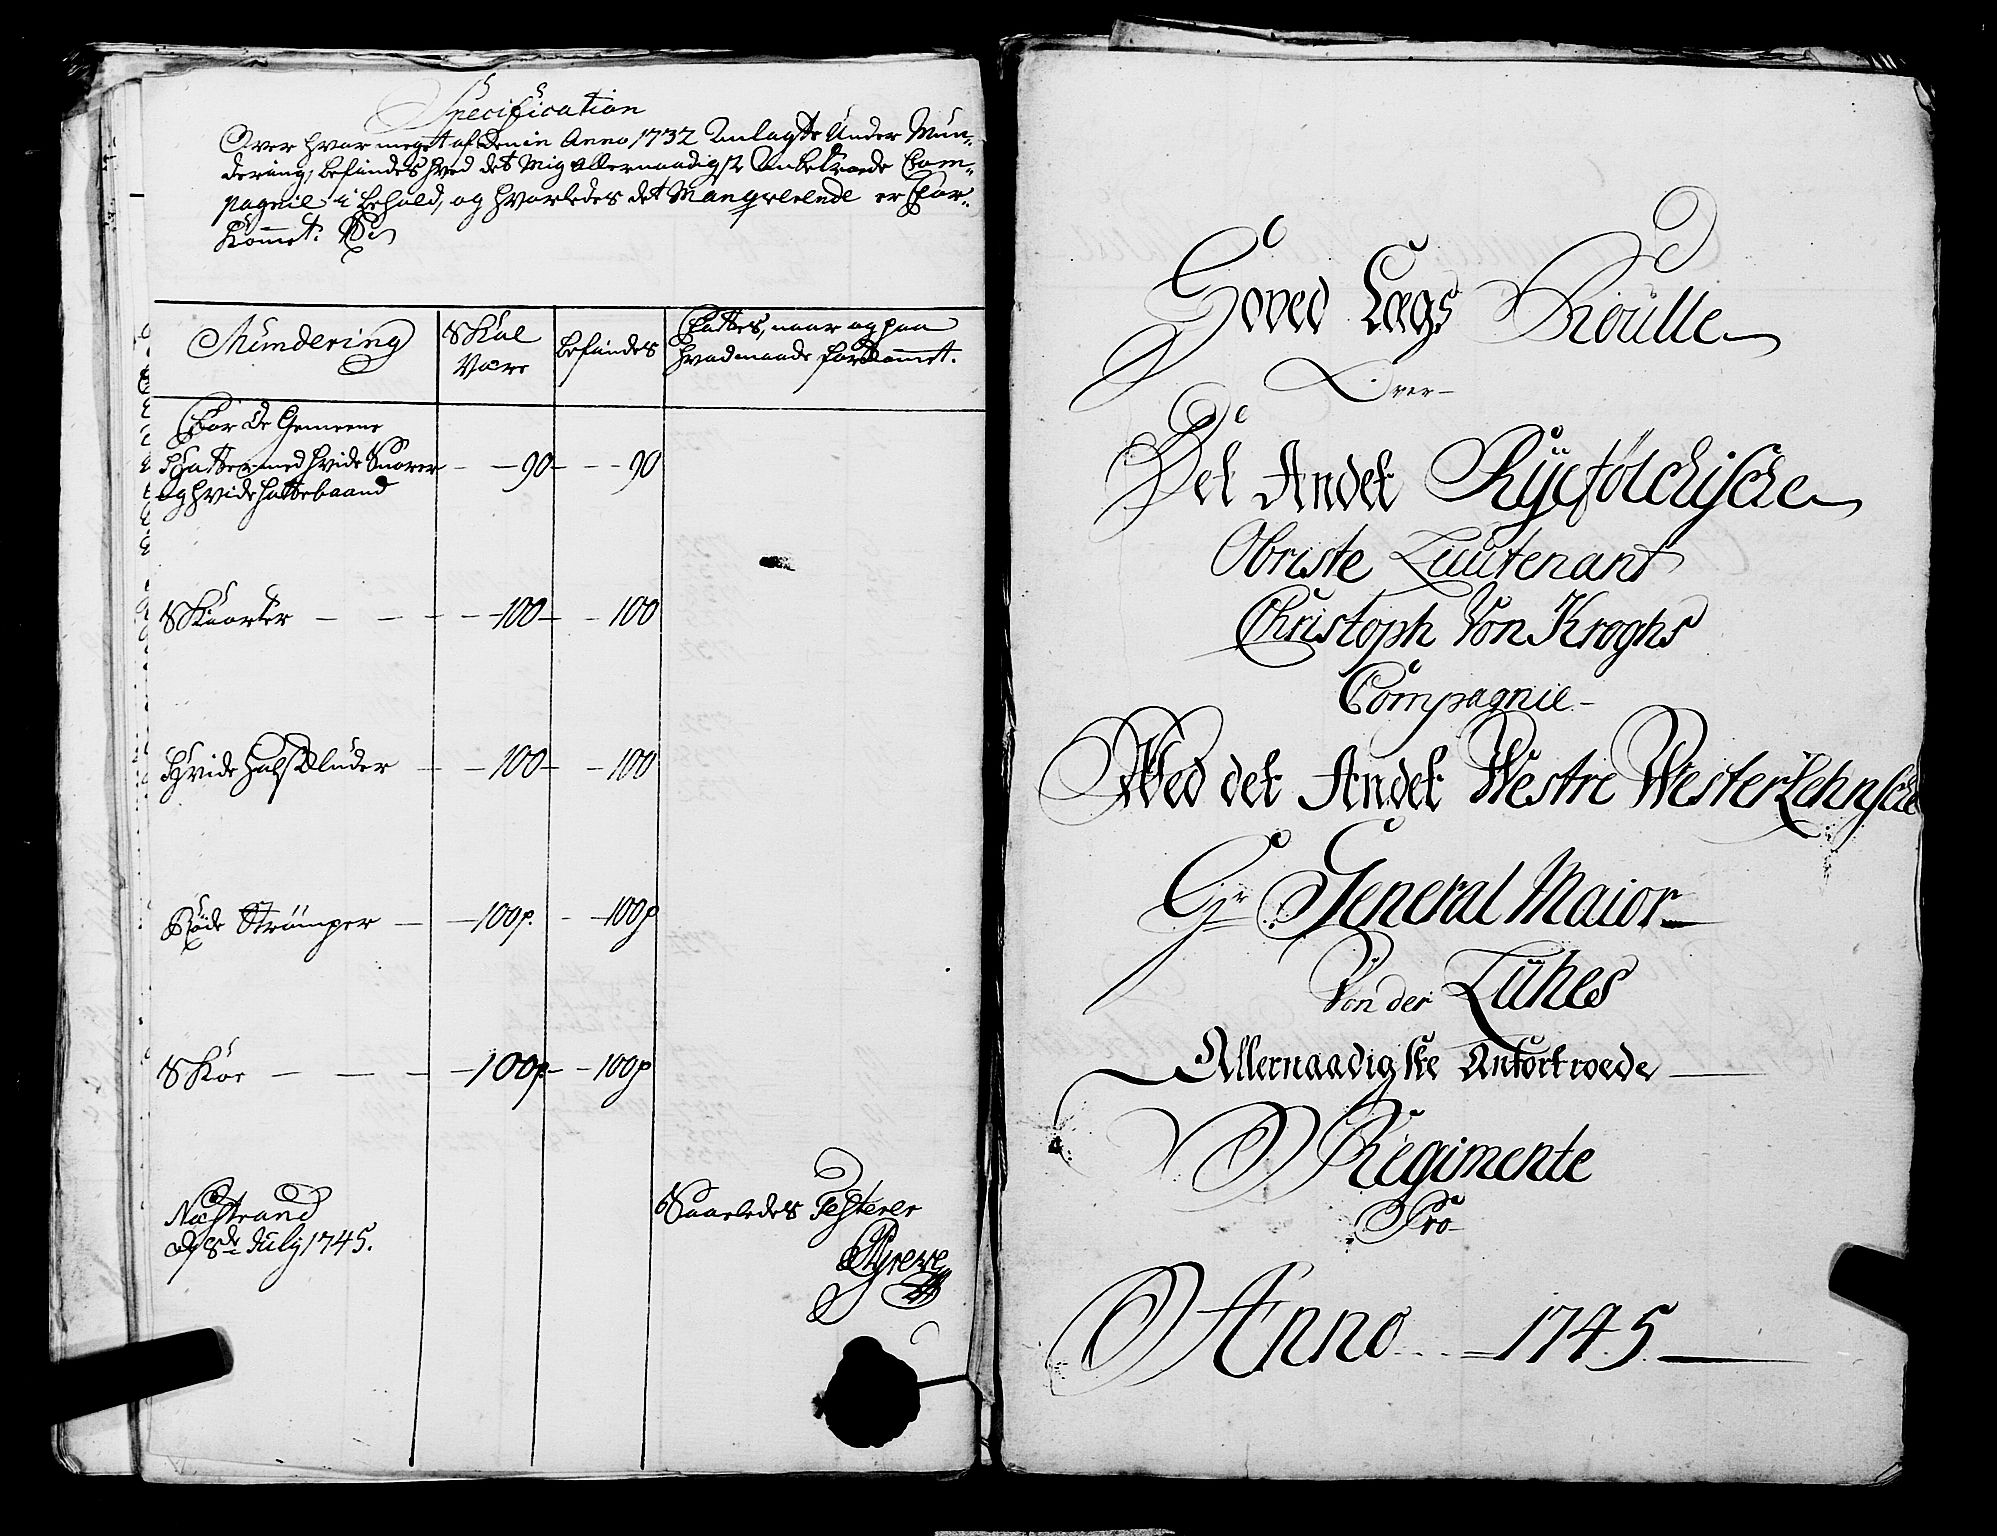 Specification
Over hvor meget af den in Anno 1732 Anlagte Under Mun„
dering, befindes hved det Mig allernaadigst Anbetroede Com„
pagnie i behold, og hvorledes det Manglende er For„
kommet.
Mündering
Skal
Være
befindes
Fattes, naar og paa
hvad maade forkommet.
For de Gemeene
Hatter med hvide Snorer — — 90 — — — 90
og hvide hattebaand
Skiorter — — — — 100 — — 100
Hvide Hals Klüder — — 100 — — 100
Röde Strömper — — 100p. — — 100p
Skoe — — — — 100p. — — 100p
Nastrand
d 8de July 1745.
Saaledes Testerer
Hoved Lægs Roulle
Over
Det Andet Ryefölckische
Obriste Lieutenant
Christoph Von Kroghs
Compagnie
Wed det Andet Westre WesterLehnsche
Hr General Maior
Von der Lühes
Allernaadigste Anfortroede
Regimente
Pro
Anno 1745